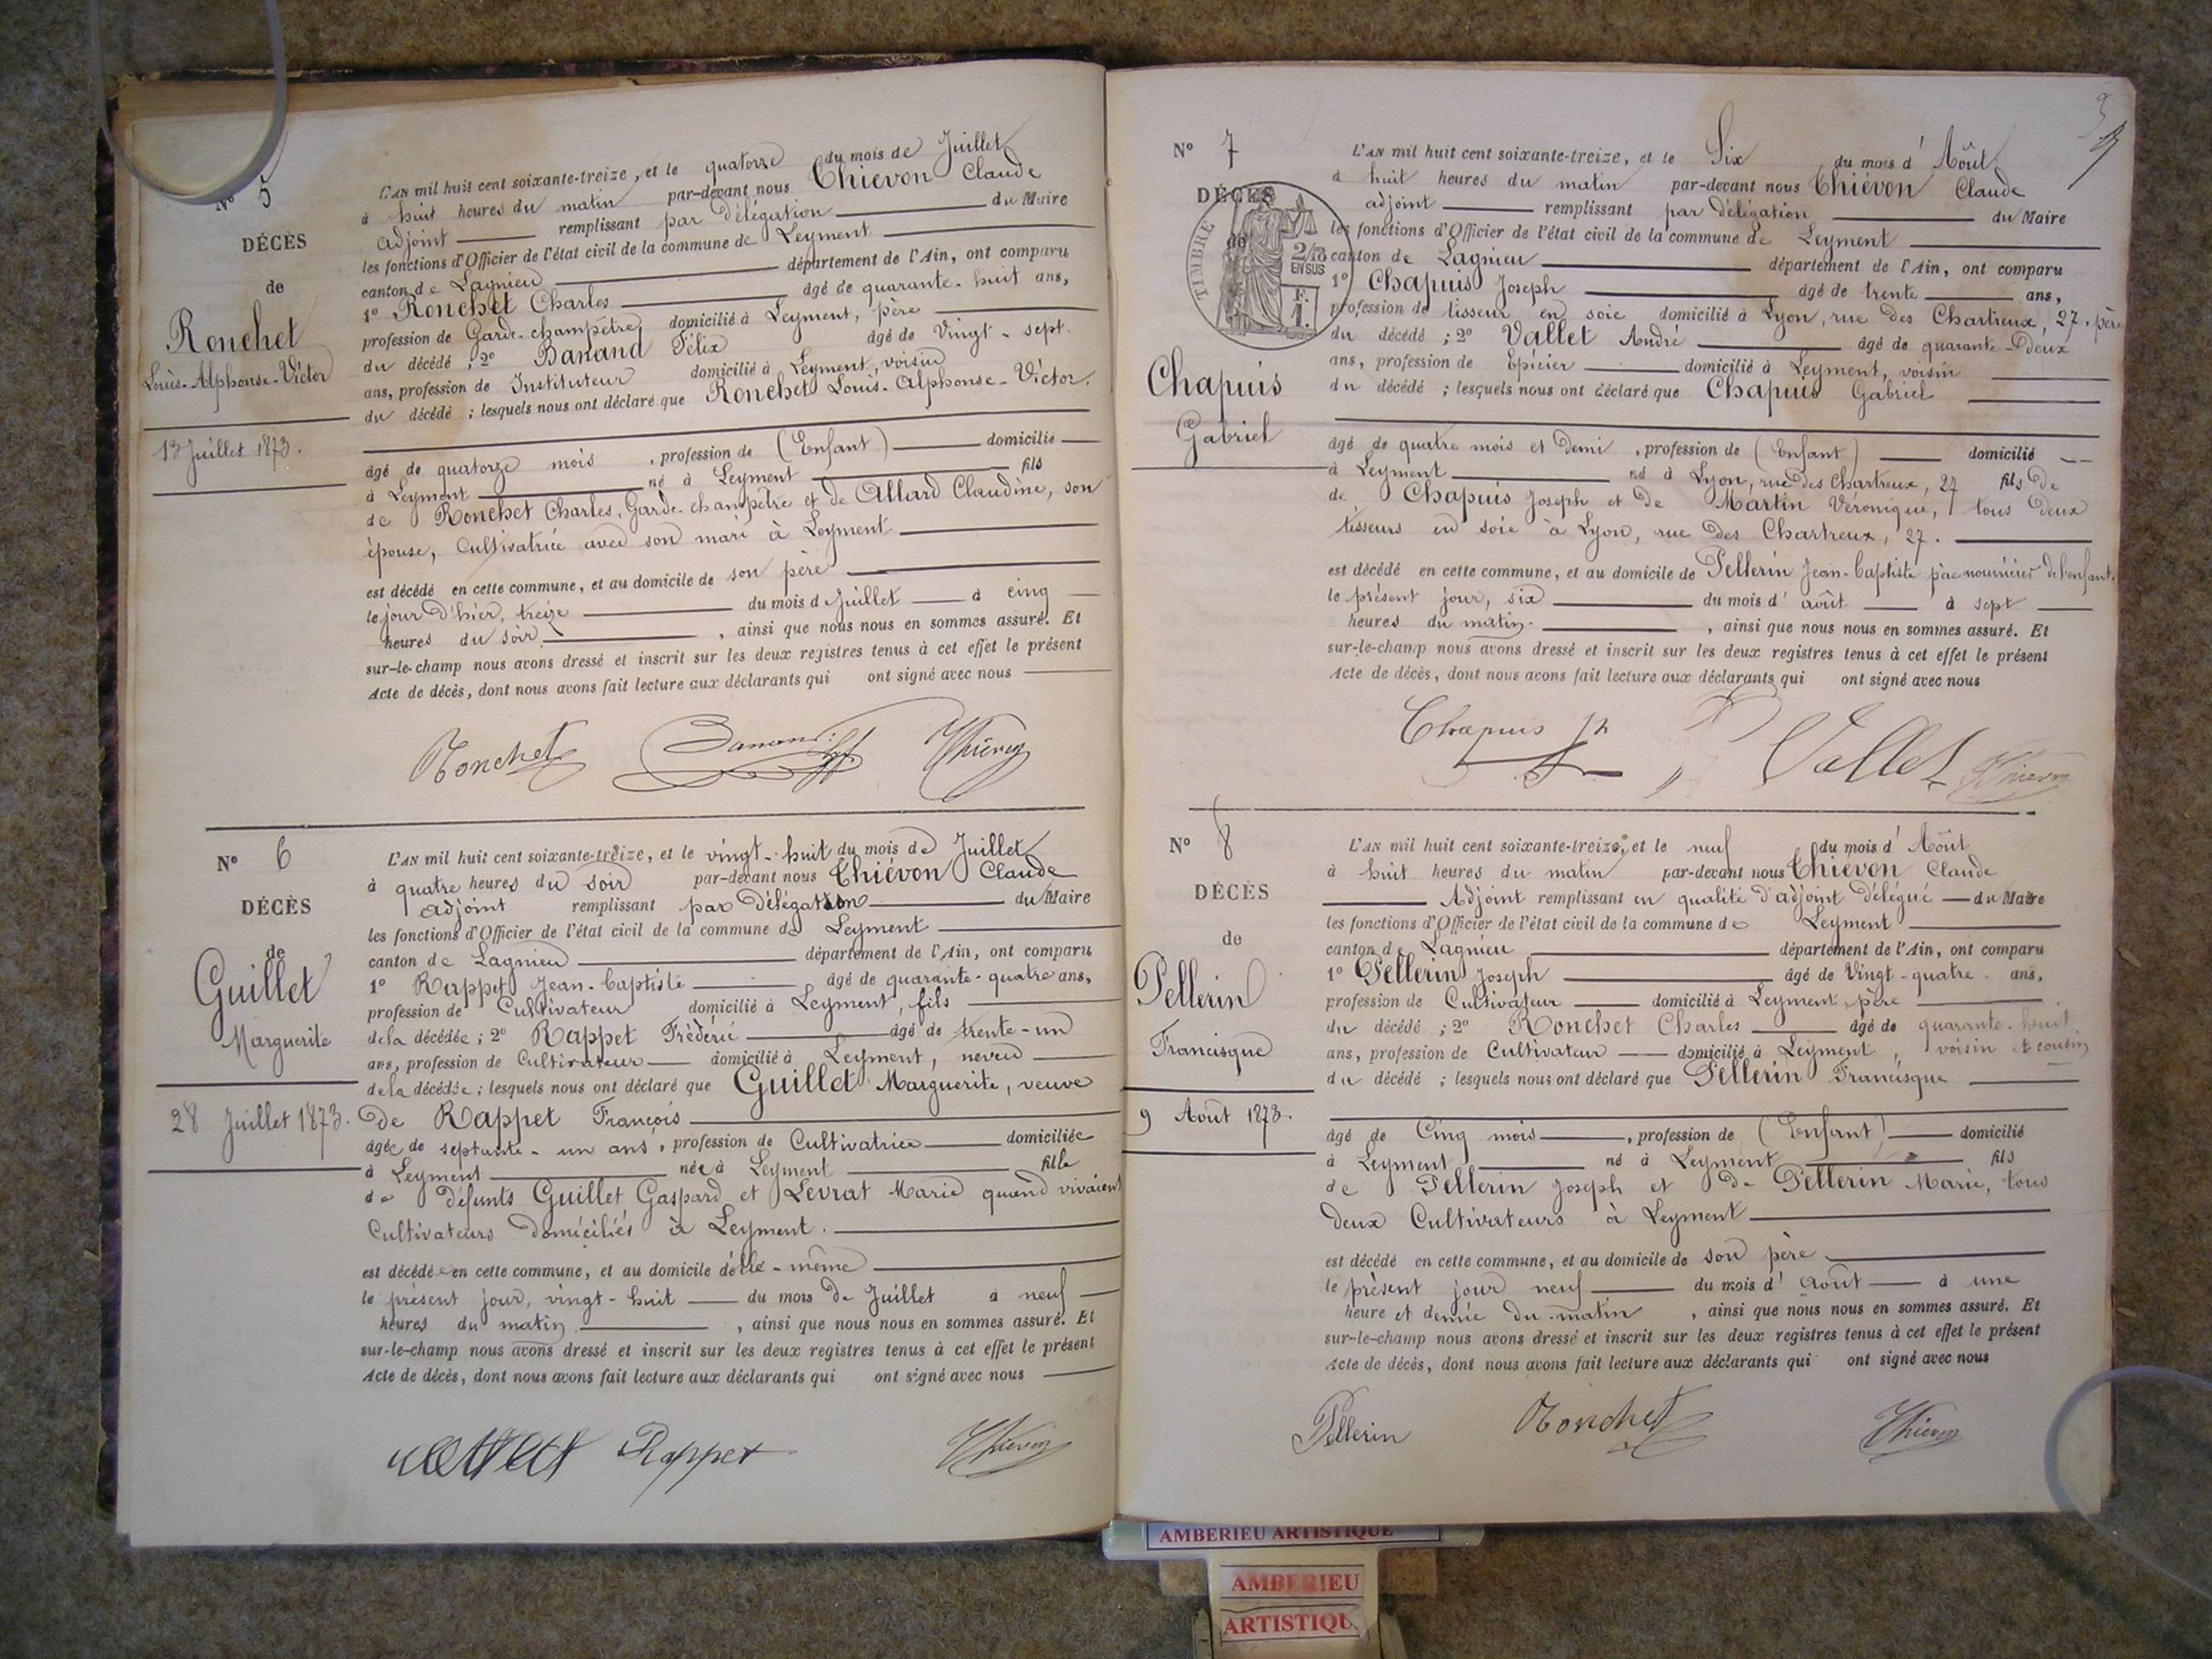 N° 5
DÉCÈS
de
Ronchet
Louis-Alphonse-Victor
13 Juillet 1873.
L'AN mil huit cent soixante-treize, et le quatorze du mois de Juillet
à huit heures du matin par-devant nous Thiévon Claude
adjoint remplissant par délégation du Maire
les fonctions d'Officier de l'état civil de la commune de Leyment
canton de Lagnieu département de l'Ain, ont comparu
1° Ronchet Charles âgé de quarante-huit ans,
profession de Garde-champêtre domicilié à Leyment, père
du décédé ; 2° Banand Félix âgé de Vingt-sept
ans, profession de Instituteur domicilié à Leyment, voisin
du décédé ; lesquels nous ont déclaré que Ronchet Louis-Alphonse-Victor,
âgé de quatorze mois, profession de (Enfant) domicilié
à Leyment né à Leyment fils
de Ronchet Charles, Garde-champêtre et de Allard Claudine, son
épouse, Cultivatrice avec son mari à Leyment
est décédé en cette commune, et au domicile de son père
le jour d'hier, treize du mois de Juillet à cinq
heures du soir, ainsi que nous nous en sommes assuré. Et
sur-le-champ nous avons dressé et inscrit sur les deux registres tenus à cet effet le présent
Acte de décès, dont nous avons fait lecture aux déclarants qui ont signé avec nous
Ronchet Banand Thievon
N° 6
DÉCÈS
de
Guillet
Marguerite
28 Juillet 1873.
L'AN mil huit cent soixante-treize, et le vingt-huit du mois de Juillet
à quatre heures du soir par-devant nous Thiévon Claude
adjoint remplissant par délégation du Maire
les fonctions d'Officier de l'état civil de la commune de Leyment
canton de Lagnieu département de l'Ain, ont comparu
1° Rappet Jean-baptiste âgé de quarante-quatre ans,
profession de Cultivateur domicilié à Leyment, fils
de la décédée ; 2° Rappet Fréderic âgé de trente-un
ans, profession de Cultivateur domicilié à Leyment, neveu
de la décédée ; lesquels nous ont déclaré que Guillet Marguerite, veuve
de Rappet François
âgée de septante-un ans, profession de Cultivatrice domiciliée
à Leyment née à Leyment fille
de défunts Guillet Gaspard et Levrat Marie quand vivaient
Cultivateurs domiciliés à Leyment.
est décédée en cette commune, et au domicile d'elle-même
le présent jour, vingt-huit du mois de Juillet à neuf
heures du matin, ainsi que nous nous en sommes assuré. Et
sur-le-champ nous avons dressé et inscrit sur les deux registres tenus à cet effet le présent
Acte de décès, dont nous avons fait lecture aux déclarants qui ont signé avec nous
Rappet Thievon
N° 7
DÉCÈS
de
TIMBRE
2/10 EN SUS
F. 1.
Chapuis
Gabriel
L'AN mil huit cent soixante-treize, et le Six du mois d'Août
à huit heures du matin par-devant nous Thiévon Claude
adjoint remplissant par délégation du Maire
les fonctions d'Officier de l'état civil de la commune de Leyment
canton de Lagnieu département de l'Ain, ont comparu
1° Chapuis Joseph âgé de trente ans,
profession de tisseur en soie domicilié à Lyon, rue des Chartreux, 27, père
du décédé ; 2° Vallet André âgé de quarante-deux
ans, profession de Epicier domicilié à Leyment, voisin
du décédé ; lesquels nous ont déclaré que Chapuis Gabriel
âgé de quatre mois et demi, profession de (Enfant) domicilié
à Leyment né à Lyon, rue des Chartreux, 27 fils de
de Chapuis Joseph et de Martin Véronique, tous deux
tisseurs en soie à Lyon, rue des Chartreux, 27.
est décédé en cette commune, et au domicile de Pellerin Jean-baptiste père nourricier de l'enfant.
le présent jour, six du mois d'août à sept
heures du matin, ainsi que nous nous en sommes assuré. Et
sur-le-champ nous avons dressé et inscrit sur les deux registres tenus à cet effet le présent
Acte de décès, dont nous avons fait lecture aux déclarants qui ont signé avec nous
Chapuis Jh Vallet Thievon
N° 8
DÉCÈS
de
Pellerin
Francisque
9 Août 1873.
L'AN mil huit cent soixante-treize, et le neuf du mois d'Août
à huit heures du matin par-devant nous Thiévon Claude
Adjoint remplissant en qualité d'adjoint délégué du Maire
les fonctions d'Officier de l'état civil de la commune de Leyment
canton de Lagnieu département de l'Ain, ont comparu
1° Pellerin Joseph âgé de Vingt-quatre ans,
profession de Cultivateur domicilié à Leyment, père
du décédé ; 2° Ronchet Charles âgé de quarante-huit
ans, profession de Cultivateur domicilié à Leyment, voisin et cousin
du décédé ; lesquels nous ont déclaré que Pellerin Francisque
âgé de Cinq mois, profession de (Enfant) domicilié
à Leyment né à Leyment fils
de Pellerin Joseph et de Pellerin Marie, tous
deux Cultivateurs à Leyment
est décédé en cette commune, et au domicile de son père
le présent jour neuf du mois d'août à une
heure et demie du matin, ainsi que nous nous en sommes assuré. Et
sur-le-champ nous avons dressé et inscrit sur les deux registres tenus à cet effet le présent
Acte de décès, dont nous avons fait lecture aux déclarants qui ont signé avec nous
Pellerin Ronchet Thievon
AMBERIEU ARTISTIQUE
AMBERIEU
ARTISTIQU